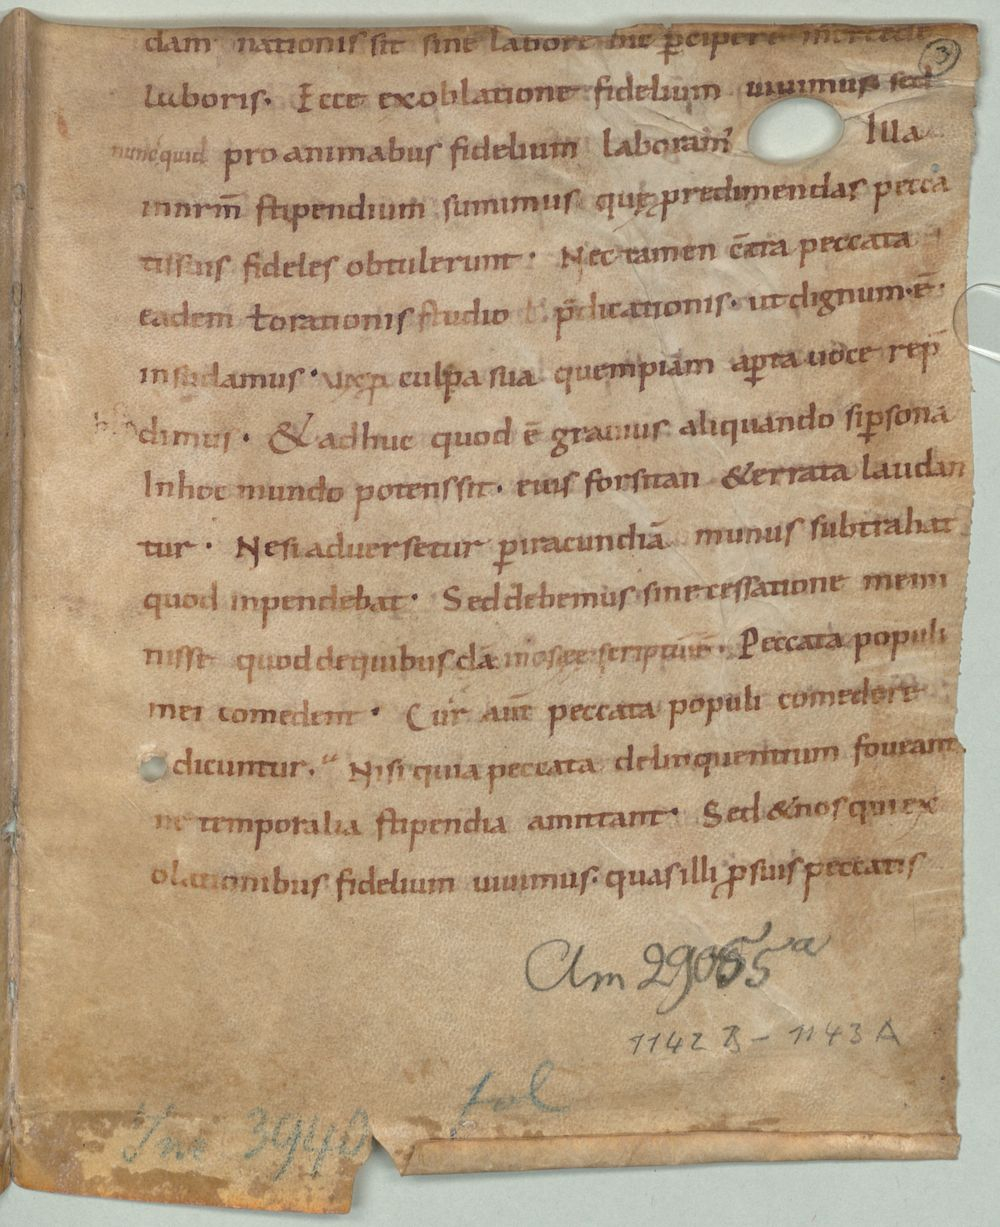 dam nationis sit sine labore hic p̄cipere mercede
3
laboris. Ecce ex oblatione fidelium uiuimus sed
nunc quid pro animabus fidelium laboram' Illa
stipendium sumimus. quę pro redimendas pecca
tis suis fideles obtulerunt. Nec tamen c̄tra peccata
eadem ł orationis studio p̄dicationis. ut dignum. ē.
insudamus. culpa sua quempiam ap̱ta uoce rep̄
dimus. & adhuc quod ē grauius aliquando si p̱sona
In hoc mundo potens sit. eius forsitan & errata laudan
tur. Ne si aduersetur p̱ iracundiā munus subtrahat
quod inpendebat. Sed debemus sine cessatione memi
nisse quod de quibusdā scriptum ē. Peccata populi
mei comedent. Cur aut̄ peccata populi comedere
dicuntur. Nisi quia peccata delinquentium foueant.
ne temporalia stipendia amittant. Sed & nos qui ex
olationibus fidelium uiuimus. quas illi p̱ suis peccatis
Clm 29055a
1142 B – 1143 A
fol
Inc 3940